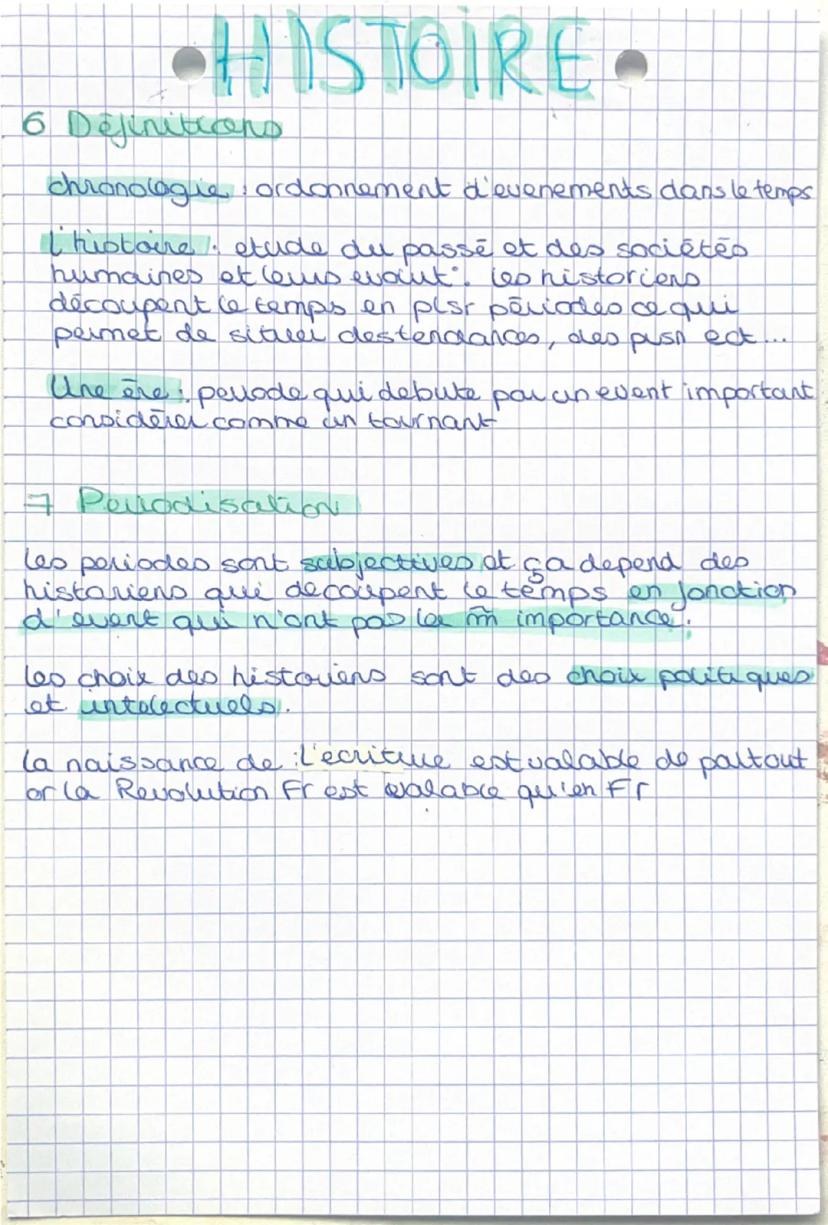 HISTOIRE
6 Définitions
chronologie : ordonnement d'evenements dans le temps
l'histoire : etude du passé et des sociétés
humaines et leurs evolut°. les historiens
découpent le temps en plsr périodes ce qui
permet de situer des tendances, des ect...
Une ère : periode qui debute par un event important
considérer comme un tournant
7 Periodisation
les periodes sont subjectives et ça depend des
historiens qui decoupent le temps en fonction
d'event qui n'ont pas la m̄ importance.
les choix des historiens sont des choix politiques
et intelectuels.
la naissance de l'ecriture est valable de partout
or la Revolution Fr est valable qu'en Fr